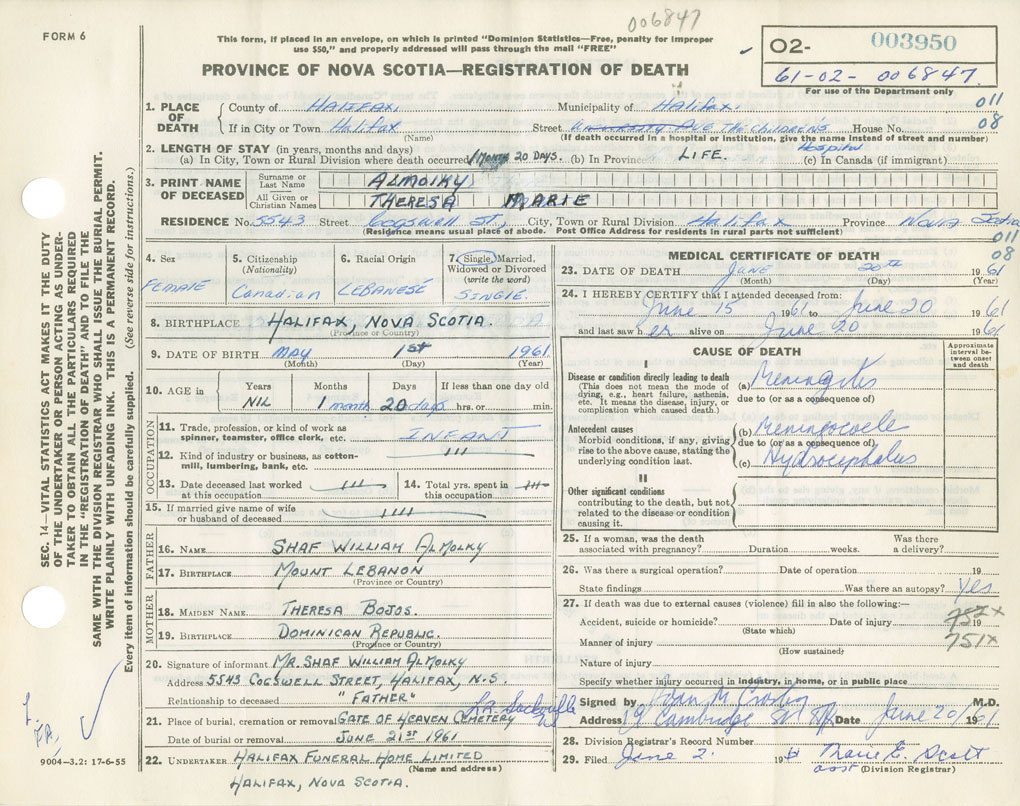 006847
FORM 6
This form, if placed in an envelope, on which is printed "Dominion Statistics—Free, penalty for improper
use $50," and properly addressed will pass through the mail "FREE"
PROVINCE OF NOVA SCOTIA—REGISTRATION OF DEATH
02- 003950
61-02- 006847.
For use of the Department only
011
08
1. PLACE OF DEATH
County of HALIFAX. Municipality of Halifax.
If in City or Town Halifax Street University Ave THE CHILDREN'S House No.
(Name) (If death occurred in a hospital or institution, give the name instead of street and number)
Hospital
2. LENGTH OF STAY (in years, months and days)
(a) In City, Town or Rural Division where death occurred 1 MONTH 20 DAYS. (b) In Province LIFE. (c) In Canada (if immigrant)
3. PRINT NAME OF DECEASED
Surname or Last Name ALMOLKY
All Given or Christian Names THERESA MARIE
RESIDENCE No. 5543 Street Cogswell St, City, Town or Rural Division Halifax Province Nova Scotia
(Residence means usual place of abode. Post Office Address for residents in rural parts not sufficient)
011
08
4. Sex
FEMALE
5. Citizenship
(Nationality)
Canadian
6. Racial Origin
LEBANESE
7. Single, Married,
Widowed or Divorced
(write the word)
SINGLE.
8. BIRTHPLACE HALIFAX, NOVA SCOTIA.
(Province or Country)
9. DATE OF BIRTH MAY 1st 1961
(Month) (Day) (Year)
10. AGE in Years Months Days If less than one day old
NIL 1 month 20 days hrs. or min.
OCCUPATION
11. Trade, profession, or kind of work as
spinner, teamster, office clerk, etc. INFANT
12. Kind of industry or business, as cotton-
mill, lumbering, bank, etc. 111
13. Date deceased last worked
at this occupation 111
14. Total yrs. spent in
this occupation 111
15. If married give name of wife
or husband of deceased 1111
FATHER
16. NAME SHAF WILLIAM ALMOLKY
17. BIRTHPLACE MOUNT LEBANON
(Province or Country)
MOTHER
18. MAIDEN NAME THERESA BOJOS.
19. BIRTHPLACE DOMINICAN REPUBLIC.
(Province or Country)
20. Signature of informant MR. SHAF WILLIAM ALMOLKY
Address 5543 COGSWELL STREET, HALIFAX, N.S.
Relationship to deceased "FATHER"
Lr. Sackville
21. Place of burial, cremation or removal GATE OF HEAVEN CEMETERY
Date of burial or removal JUNE 21ST 1961
22. UNDERTAKER HALIFAX FUNERAL HOME LIMITED
(Name and address)
HALIFAX, NOVA SCOTIA.
MEDICAL CERTIFICATE OF DEATH
23. DATE OF DEATH June 20th 1961
(Month) (Day) (Year)
24. I HEREBY CERTIFY that I attended deceased from:
June 15 1961 to June 20 1961
and last saw her alive on June 20 1961
CAUSE OF DEATH
Approximate interval between onset and death
I
Disease or condition directly leading to death
(This does not mean the mode of
dying, e.g., heart failure, asthenia,
etc. It means the disease, injury, or
complication which caused death.)
(a) Meningitis
due to (or as a consequence of)
Antecedent causes
Morbid conditions, if any, giving
rise to the above cause, stating the
underlying condition last.
(b) Meningocele
due to (or as a consequence of)
(c) Hydrocephalus
II
Other significant conditions
contributing to the death, but not
related to the disease or condition
causing it.
25. If a woman, was the death
associated with pregnancy? Duration weeks. Was there
a delivery?
26. Was there a surgical operation? Date of operation 19
State findings Was there an autopsy? Yes
27. If death was due to external causes (violence) fill in also the following:—
Accident, suicide or homicide? Date of injury 19
(State which)
757X
751X
Manner of injury
(How sustained)
Nature of injury
Specify whether injury occurred in industry, in home, or in public place
Signed by Joan M Crosby M.D.
Address 19 Cambridge St Hfx Date June 20/1961
28. Division Registrar's Record Number
29. Filed June 2 196 Marie E. Scott
asst (Division Registrar)
SEC. 14—VITAL STATISTICS ACT MAKES IT THE DUTY
OF THE UNDERTAKER OR PERSON ACTING AS UNDER-
TAKER TO OBTAIN ALL THE PARTICULARS REQUIRED
IN THE "REGISTRATION OF DEATH" AND TO FILE THE
SAME WITH THE DIVISION REGISTRAR WHO SHALL ISSUE THE BURIAL PERMIT.
WRITE PLAINLY WITH UNFADING INK. THIS IS A PERMANENT RECORD.
Every item of information should be carefully supplied. (See reverse side for instructions.)
9004—3.2: 17-6-55